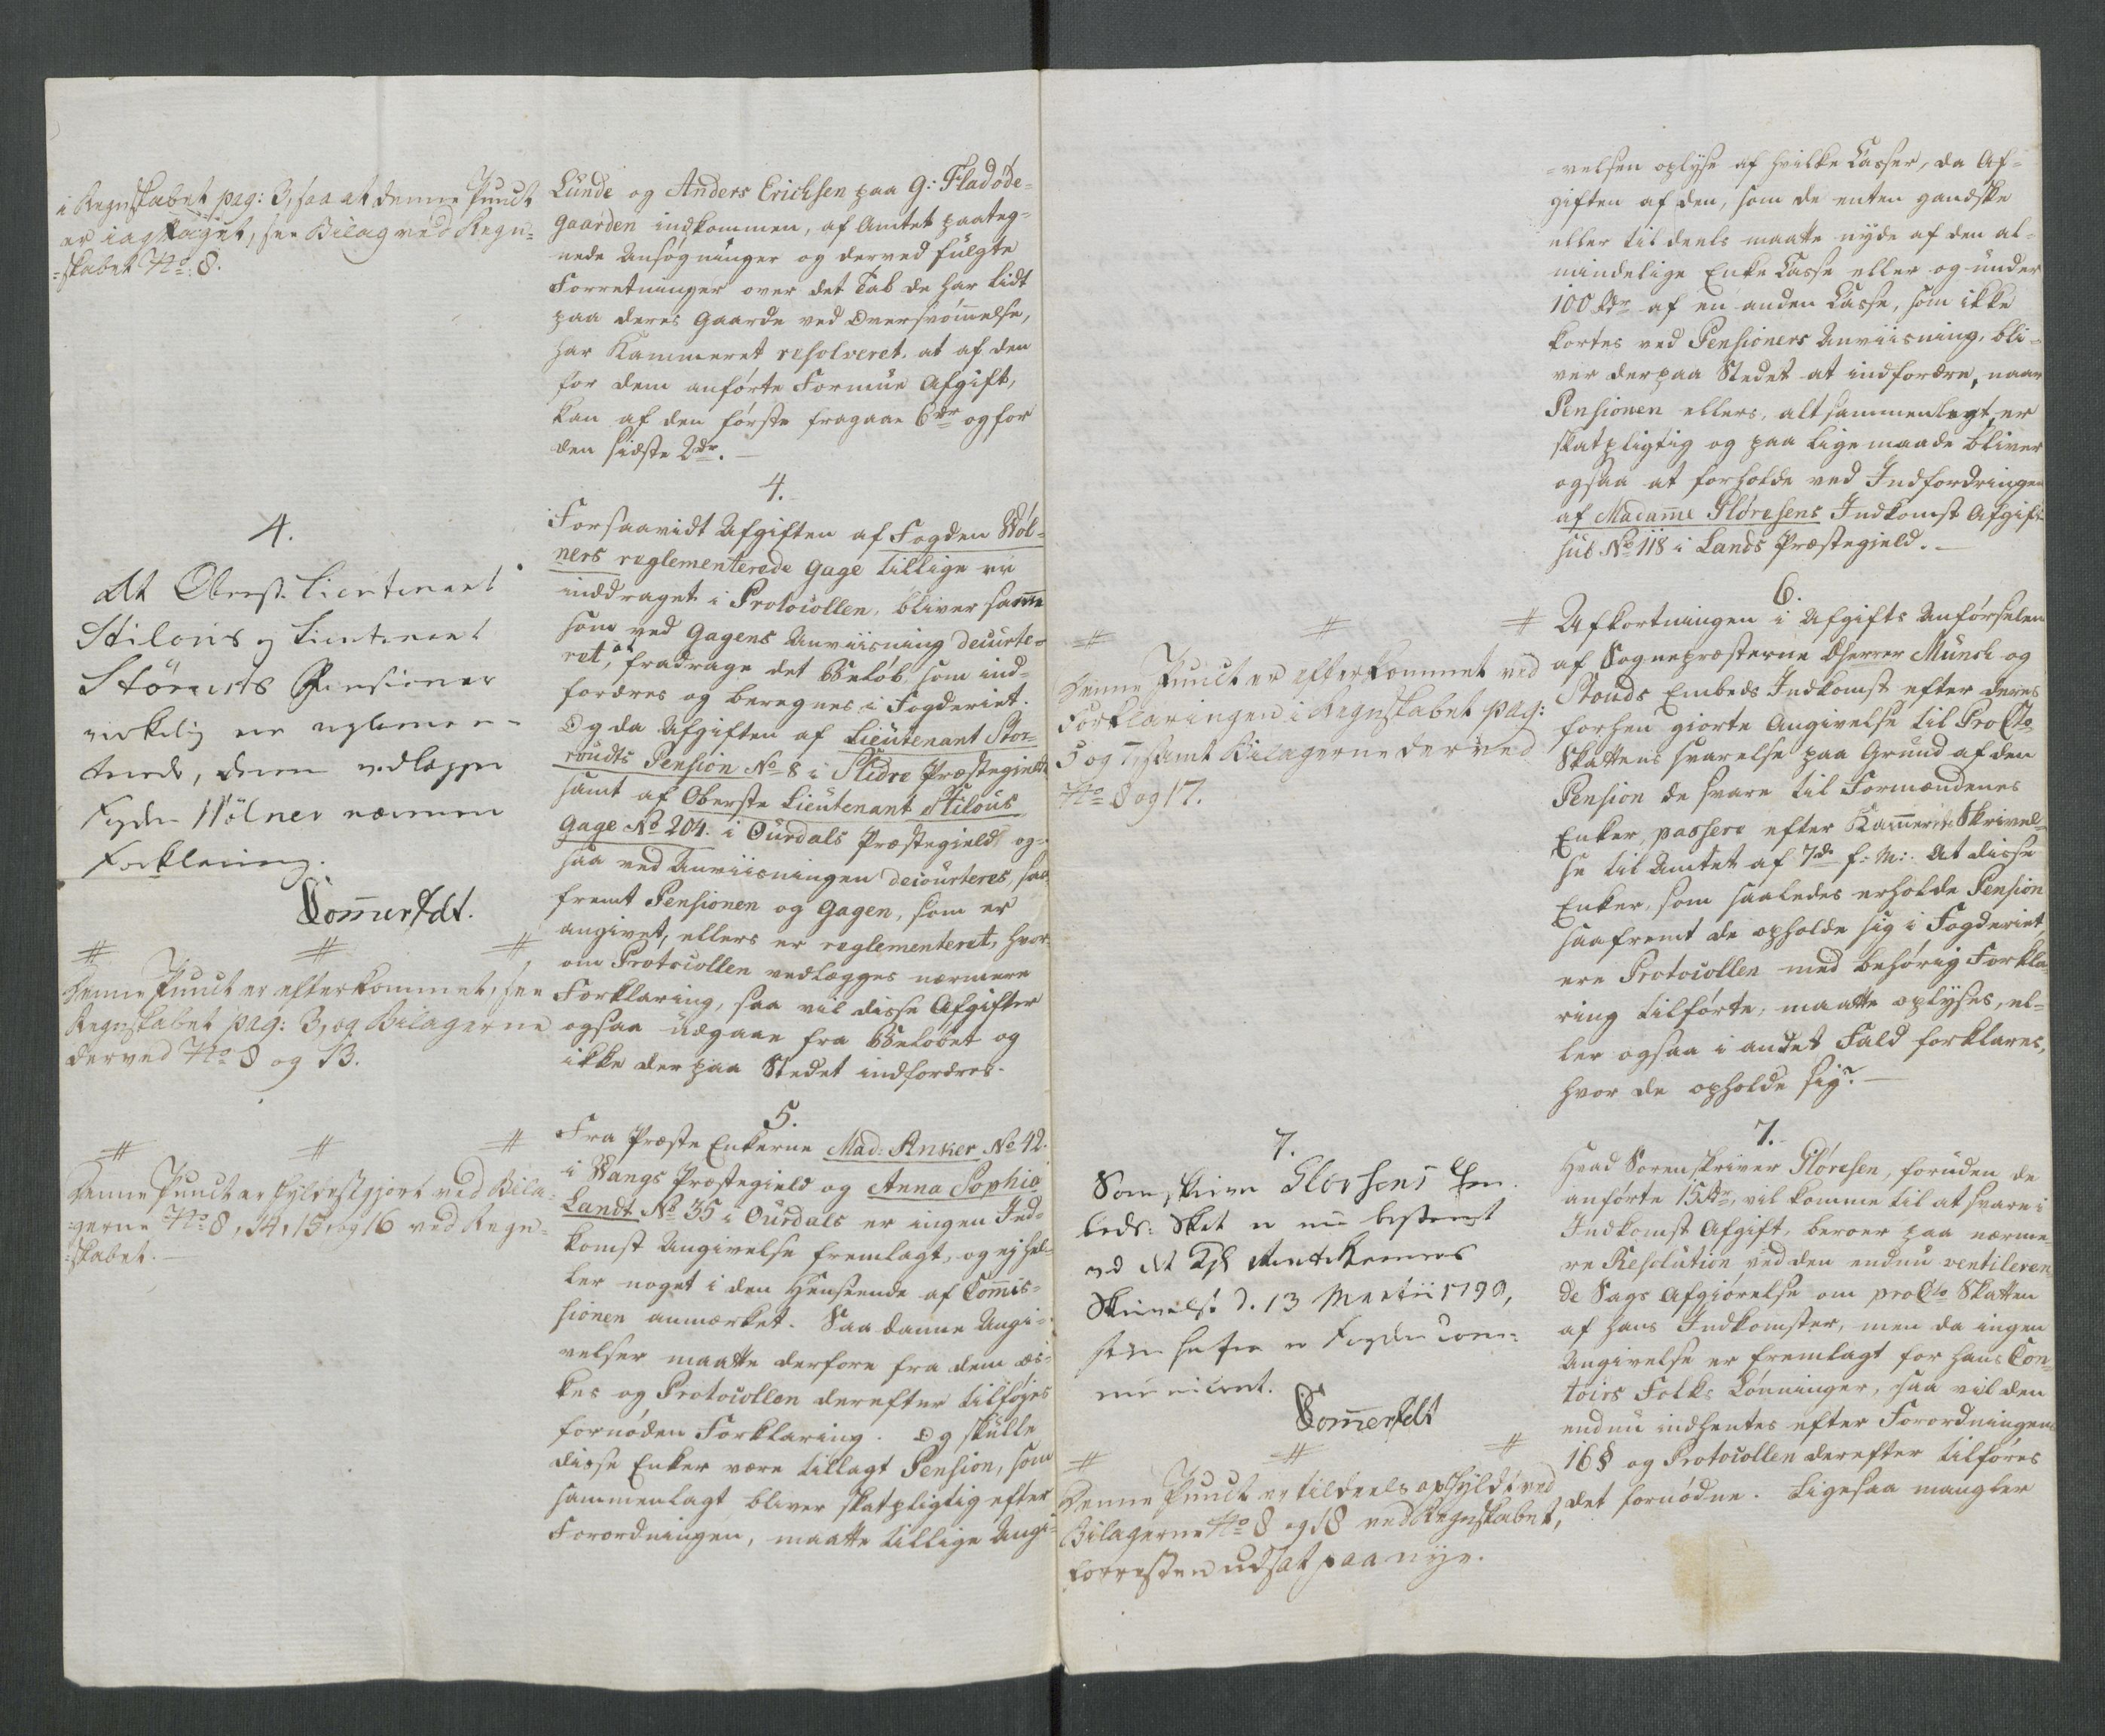 i Regnskabet pag: 3, saa at denne Punct
er iagttaget, see Bilag ved Regn-
=skabet No: 8.
4.
At Oberst Lieutenant
Stilous og Lieutenant
Storouds Pensioner
virkelig ere reglemen-
terede, derom vedlægger
Fogden Wølner nærmere
Forklaring.
Sommerfeldt.
# # #
Denne Punct er efterkommet, see
Regnskabet pag: 3, og Bilagerne
derved No 8 og 13.
# # #
Denne Punct er fyldestgjort ved Bila-
gerne No 8, 14, 15, og 16 ved Regn-
=skabet.
Lunde og Anders Erichsen paa G: Fladøde-
gaarden indkommen, af Amtet paateg-
nede Ansøgninger og derved fulgte
Forretninger over det Tab de har lidt
paa deres Gaarde ved Oversvømmelse,
har Kammeret resolveret, at af den
for dem anførte Formue Afgift,
kan af den første fragaae 6 dr og for
den sidste 2 dr.
4.
Forsaavidt Afgiften af Fogden Wøl-
ners reglementerede Gage tillige er
inddraget i Protocollen, bliver samme
som ved Gagens Anviisning decurte-
ret, at fradrage det Beløb, som ind-
fordres og beregnes i Fogderiet.
Og da Afgiften af Lieutenant Stor-
roudts Pension No 8 i Slidre Præstegield
samt af Oberste Lieutenant Stilous
Gage No 204. i Ourdals Præstegield og-
saa ved Anviisningen decourteres, saa-
fremt Pensionen og Gagen, som er
angivet, ellers er reglementeret, hvor-
om Protocollen vedlægges nærmere
Forklaring, saa vil disse Afgifter
ogsaa udgaae fra Beløbet og
ikke der paa Stedet indfordres.
5.
Fra Præste Enkerne Mad: Anker No 42.
i Vangs Præstegield og Anna Sophia
Landt No 35 i Ourdals er ingen Ind-
komst Angivelse fremlagt, og ej hel-
ler noget i den Henseende af Commis-
sionen anmærket. Saadanne Angi-
velser maatte derfore fra dem æs-
kes og Protocollen derefter tilføjes
fornøden Forklaring. Og skulle
disse Enker være tillagt Pension, som
sammenlagt bliver skatpligtig efter
Forordningen, maatte tillige Angi-
# # #
Denne Punct er efterkommet ved
Forklaringen i Regnskabet pag:
5 og 7, samt Bilagerne derved
No 8 og 17.
7.
Sorenskriver Flørsens
Skat er nu bestemt
ved det Kgl Rentekamers
Skrivelse d. 13 Martii 1790,
Fogden com-
municeret.
Sommerfeldt
# # #
Denne Punct er tildeels opfyldt ved
Bilagerne No 8 og 18 ved Regnskabet,
forresten udsat paa nye.
-velsen oplyse af hvilke Casser, da Af-
giften af den, som de enten gandske
eller til deels maatte nyde af den al-
mindelige Enke Casse eller og under
100 Rdr af en anden Casse, som ikke
kortes ved Pensioners Anviisning, bli-
ver der paa Stedet at indfordre, naar
Pensionen ellers, altsammenlagt, er
skatpligtig og paa lige maade bliver
ogsaa at forholde ved Indfordringen
af Madame Flørensens Indkomst Afgift
sub No 118 i Lands Præstegield.
6.
Afkortningen i Afgifts Anførselen
af Sognepræsterne Dherrer Münch og
Stouds Embeds Indkomst efter deres
forhen giorte Angivelse til ProCto
Skattens svarelse paa Grund af den
Pension de svare til Formændenes
Enker, passere efter Kammerets Skrivel-
se til Amtet af 7de f: M: At disse
Enker, som saaledes erholde Pension
saafremt de opholde sig i Fogderiet,
ere Protocollen med behørig Forkla-
ring tilførte, maatte oplyses, el-
ler ogsaa i andet Fald forklares,
hvor de opholde sig?
7.
Hvad Sorenskriver Flørensen, foruden de
anførte 15 Rdr, vil komme til at svare i
Indkomst Afgift, beroer paa nærme-
re Resolution ved den endnu ventileren-
de Sags Afgiørelse om proCto Skatten
af hans Indkomster, men da ingen
Angivelse er fremlagt for hans Con-
toirs Folks Lønninger, saa vil den
endnu indhentes efter Forordningens
16 § og Protocollen derefter tilføres
det fornødne. Ligesaa mangler